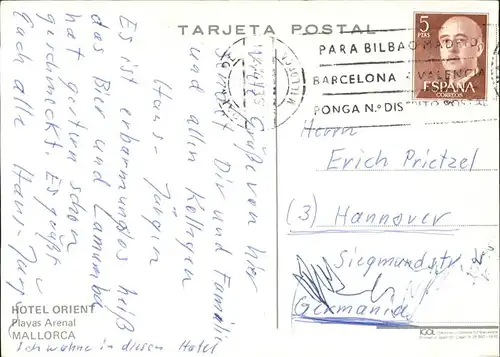 TARJETA POSTAL
5
PTAS
ESPAÑA
CORREOS
PARA BILBAO MADRID
BARCELONA VALENCIA
PONGA N.º DISTRITO POSTAL
Grüße von hier
sendet Dir und Familie
und allen Kollegen
Hans-Jürgen
Es ist erbarmungslos heiß
das Bier und Lamumba
hat gestern schon
geschmeckt. Es grüßt
Euch alle Hans-Jürg
Herrn
Erich Prietzel
(3) Hannover
Siegmundstr.
Germania
HOTEL ORIENT
Playas Arenal
MALLORCA
Ich wohne in diesem Hotel